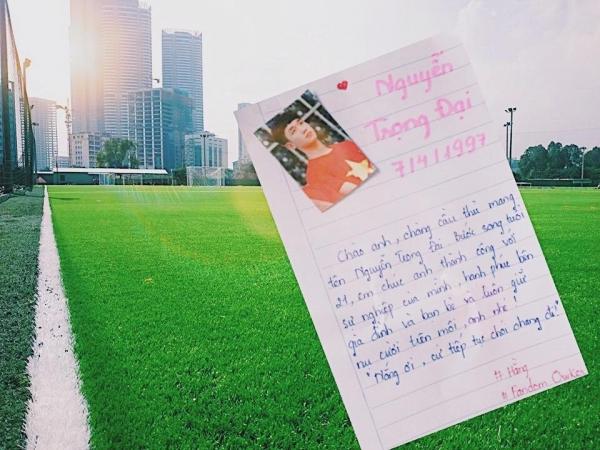 Nguyễn
Trọng Đại
7/4/1997
Chào anh, chàng cầu thủ mang
tên Nguyễn Trọng Đại. Bước sang tuổi
21, em chúc anh thành công với
sự nghiệp của mình, hạnh phúc bên
gia đình và bạn bè và luôn giữ
nụ cười trên môi, anh nhé!
"Nắng ơi, cứ tiếp tục chói chang đi!"
# Hằng
# Fandom